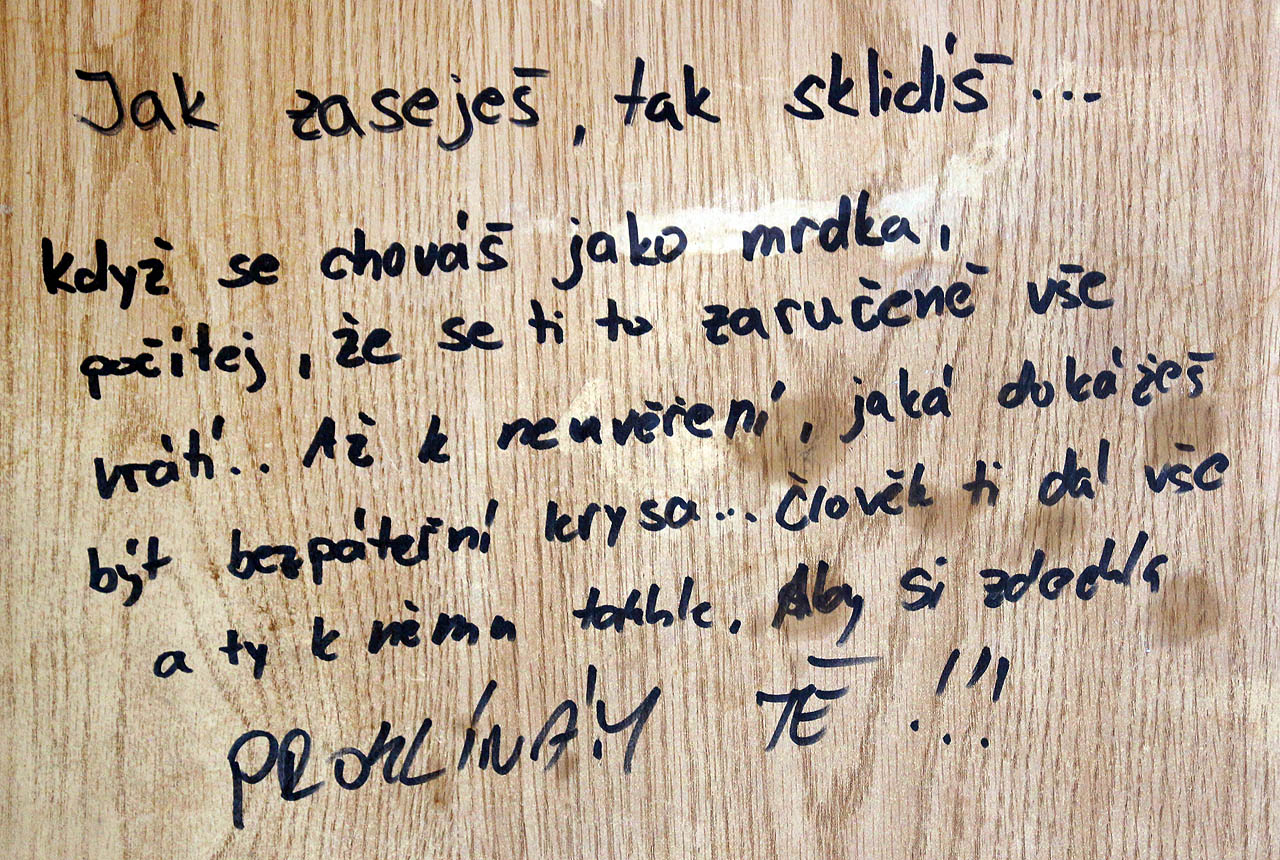 Jak zaseješ, tak sklidíš...
když se chováš jako mrdka,
počítej, že se ti to zaručeně vše
vrátí.. Až k neuvěření, jaká dokážeš
být bezpáteřní krysa... Člověk ti dal vše
a ty k němu takhle. Aby si zdechla
PROKLÍNÁM TĚ !!!